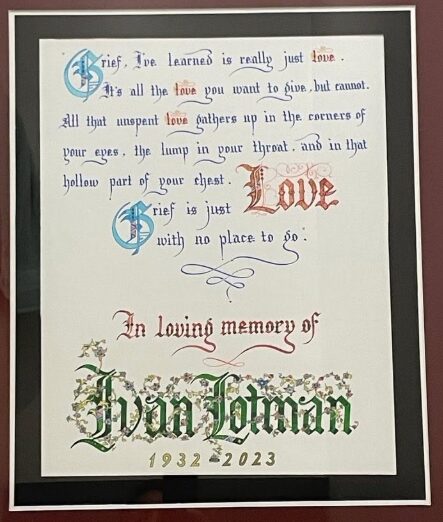 Grief, I've learned is really just love.
It's all the love you want to give, but cannot.
All that unspent love gathers up in the corners of
your eyes, the lump in your throat, and in that
hollow part of your chest.
Grief is just Love
with no place to go.
In loving memory of
Ivan Lotman
1932-2023